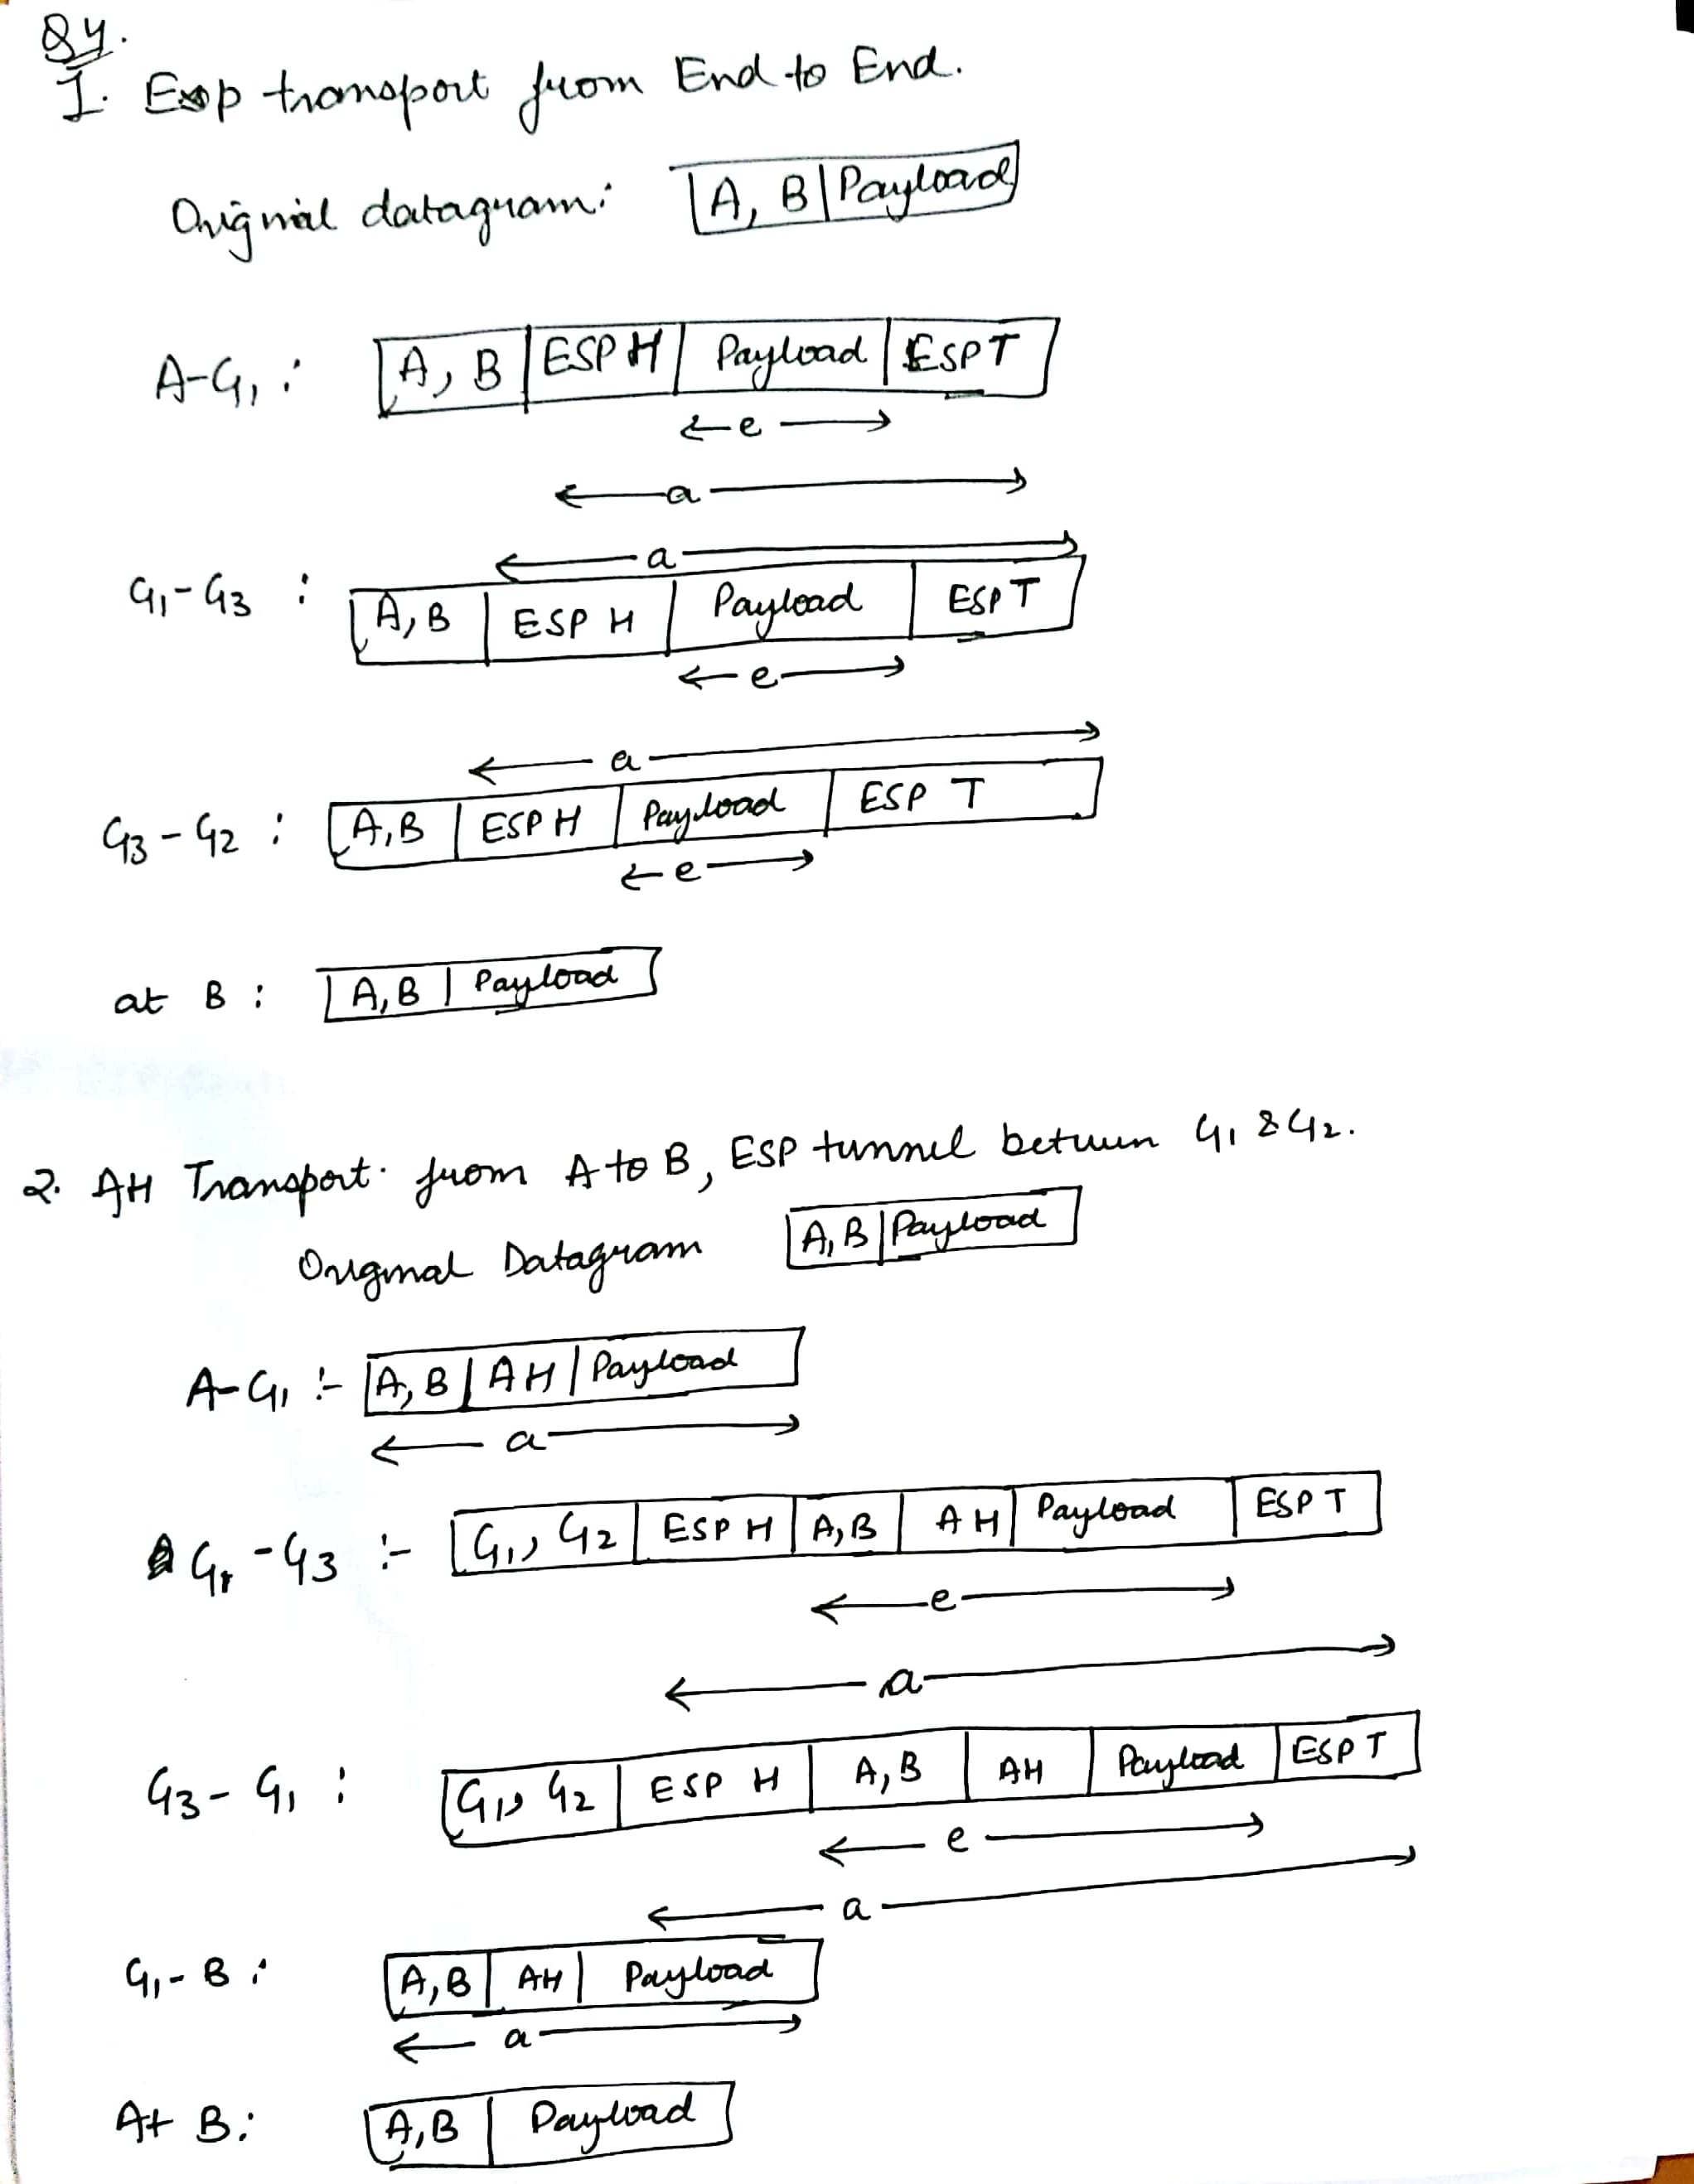 Q4.
I. Esp transport from End to End.
Original datagram: A, B | Payload
A-G1 : A, B | ESP H | Payload | ESP T
e
a
a
G1-G3 : A, B | ESP H | Payload | ESP T
e
a
G3-G2 : A,B | ESP H | Payload | ESP T
e
at B : A,B | Payload
2. AH Transport from A to B, ESP tunnel between G1 & G2.
Original Datagram A, B | Payload
A-G1 :- A, B | AH | Payload
a
G1-G3 :- G1, G2 | ESP H | A,B | AH | Payload | ESP T
e
a
G3-G1 : G1, G2 | ESP H | A,B | AH | Payload | ESP T
e
a
G1-B : A,B | AH | Payload
a
At B: A,B | Payload